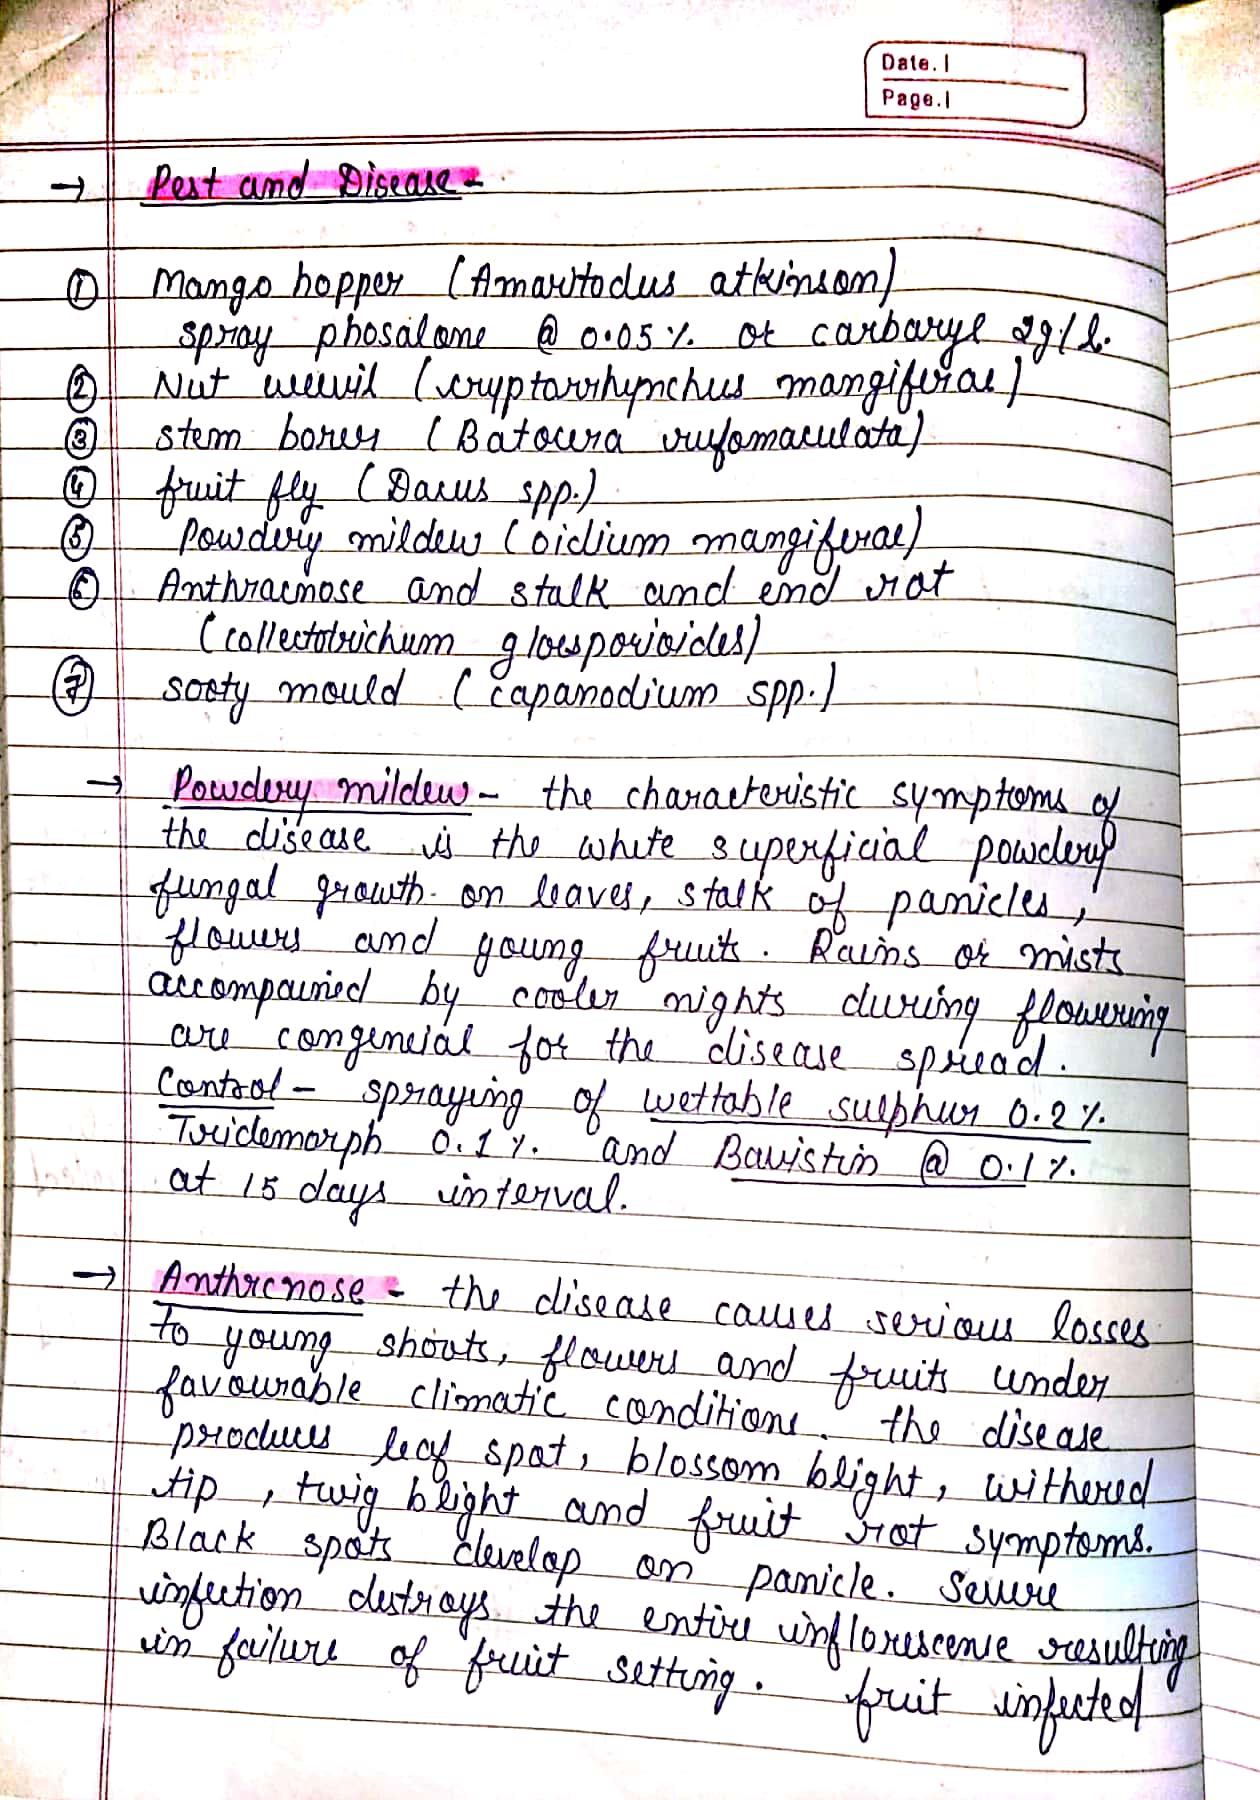 Date.
Page.
→ Pest and Disease -
① Mango hopper (Amaritodus atkinson)
spray phosalone @ 0.05 %. or carbaryl 2g/l.
② Nut weevil (cryptorrhynchus mangiferae)
③ stem borer (Batocera rufomaculata)
④ fruit fly (Dacus spp.)
⑤ Powdery mildew (oidium mangiferae)
⑥ Anthracnose and stalk and end rot
(collectotrichum gloesporioides)
⑦ sooty mould (capanodium spp.)
→ Powdery mildew - the characteristic symptoms of
the disease is the white superficial powdery
fungal growth on leaves, stalk of panicles,
flowers and young fruits. Rains or mists
accompained by cooler nights during flowering
are congeneial for the disease spread.
Control - spraying of wettable sulphur 0.2 %.
Tridemorph 0.1 %. and Bavistin @ 0.1 %.
at 15 days interval.
→ Anthrcnose - the disease causes serious losses
to young shoots, flowers and fruits under
favourable climatic conditions. the disease
produces leaf spot, blossom blight, withered
tip, twig blight and fruit rot symptoms.
Black spots develop on panicle. Severe
infection destroys the entire inflorescence resulting
in failure of fruit setting. fruit infected